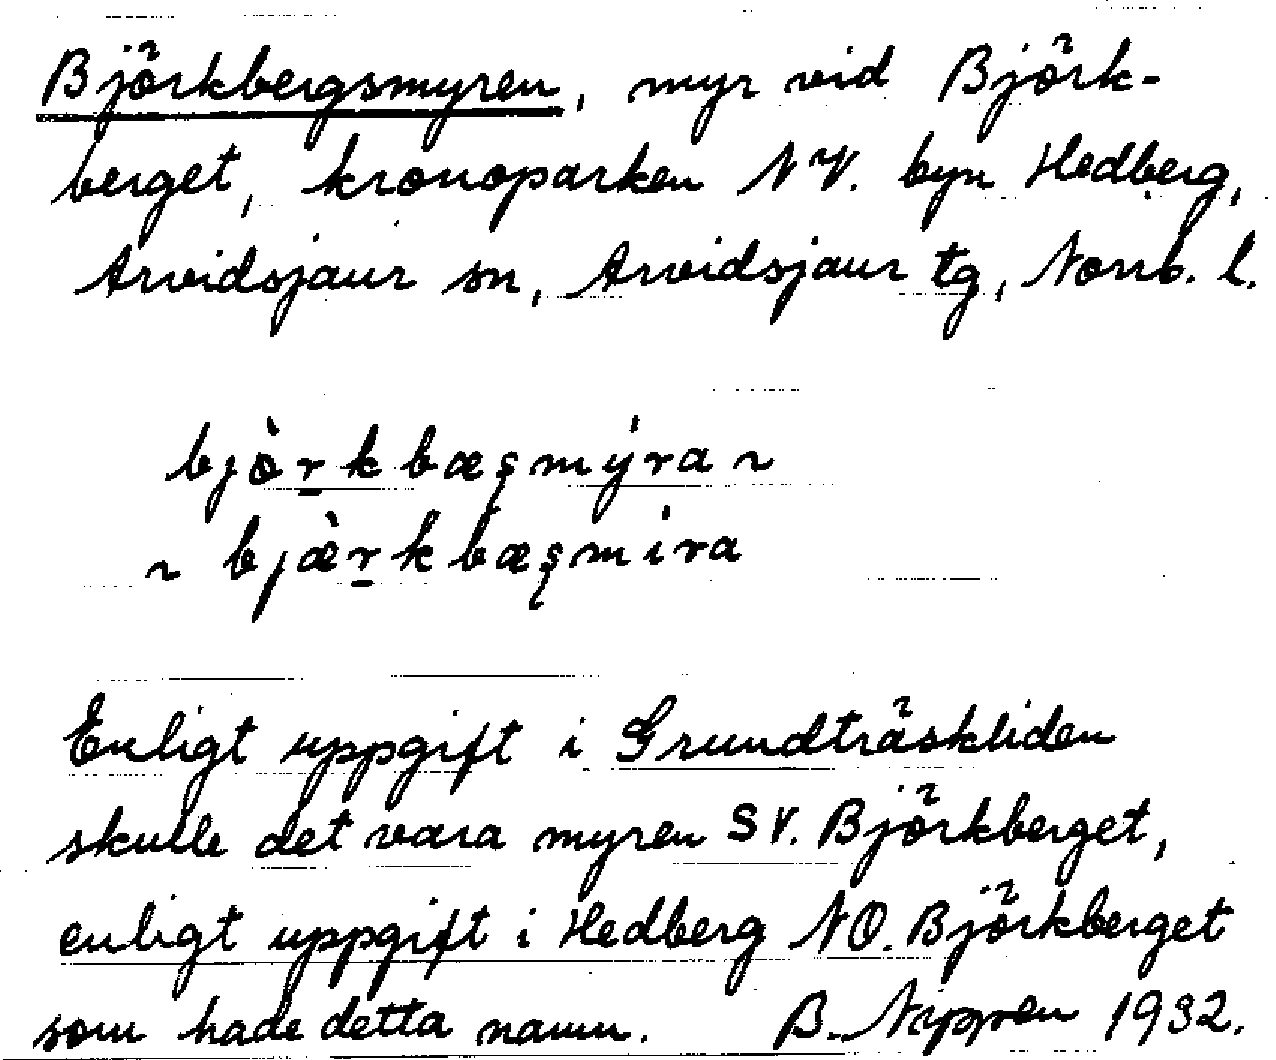 Björkbergsmyren, myr vid Björk-
berget, kronoparken NV. byn Hedberg,
Arvidsjaur sn, Arvidsjaur tg, Norrb. l.
bjö̀r̲kbæşmýra ~
~ bjæ̀r̲kbæşmíra
Enligt uppgift i Grundträskliden
skulle det vara myren SV. Björkberget,
enligt uppgift i Hedberg NO. Björkberget
som hade detta namn. B. 1932.